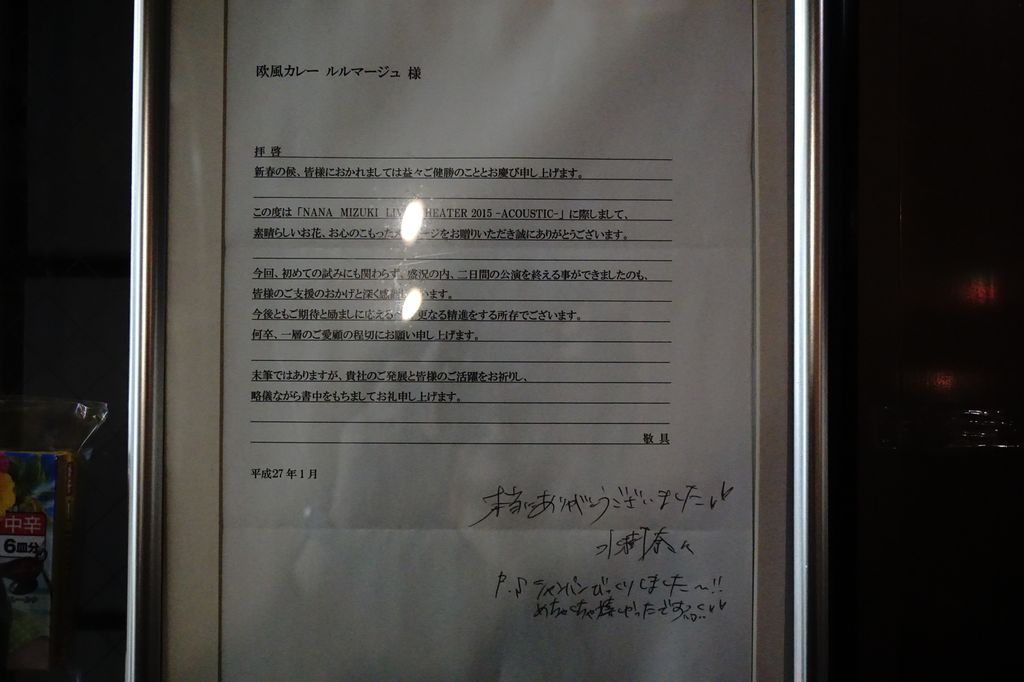 欧風カレー ルルマージュ 様
拝 啓
新春の候、皆様におかれましては益々ご健勝のこととお慶び申し上げます。
この度は「NANA MIZUKI LIVE THEATER 2015 -ACOUSTIC-」に際しまして、
素晴らしいお花、お心のこもったメッセージをお贈りいただき誠にありがとうございます。
今回、初めての試みにも関わらず、盛況の内、二日間の公演を終える事ができましたのも、
皆様のご支援のおかげと深く感謝います。
今後ともご期待と励ましに応えるべく更なる精進をする所存でございます。
何卒、一層のご愛顧の程切にお願い申し上げます。
末筆ではありますが、貴社のご発展と皆様のご活躍をお祈りし、
略儀ながら書中をもちましてお礼申し上げます。
敬 具
平成27年1月
本当にありがとうございました
水樹奈々
P.S シャンパンびっくりしました〜!!
めちゃくちゃ嬉しかったです
中辛
6皿分